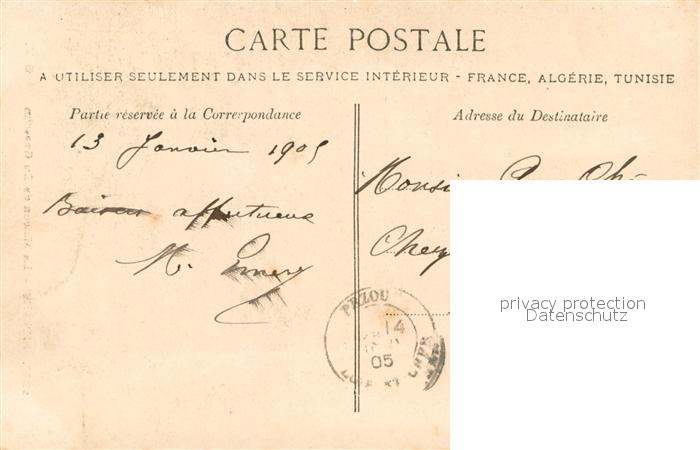 CARTE POSTALE
A UTILISER SEULEMENT DANS LE SERVICE INTÉRIEUR - FRANCE, ALGÉRIE, TUNISIE
Partie réservée à la Correspondance
13 Janvier 1905
Baisers affectueux
M.
Adresse du Destinataire
PEZOU
14
05
LOIR ET CHER
privacy protection
Datenschutz